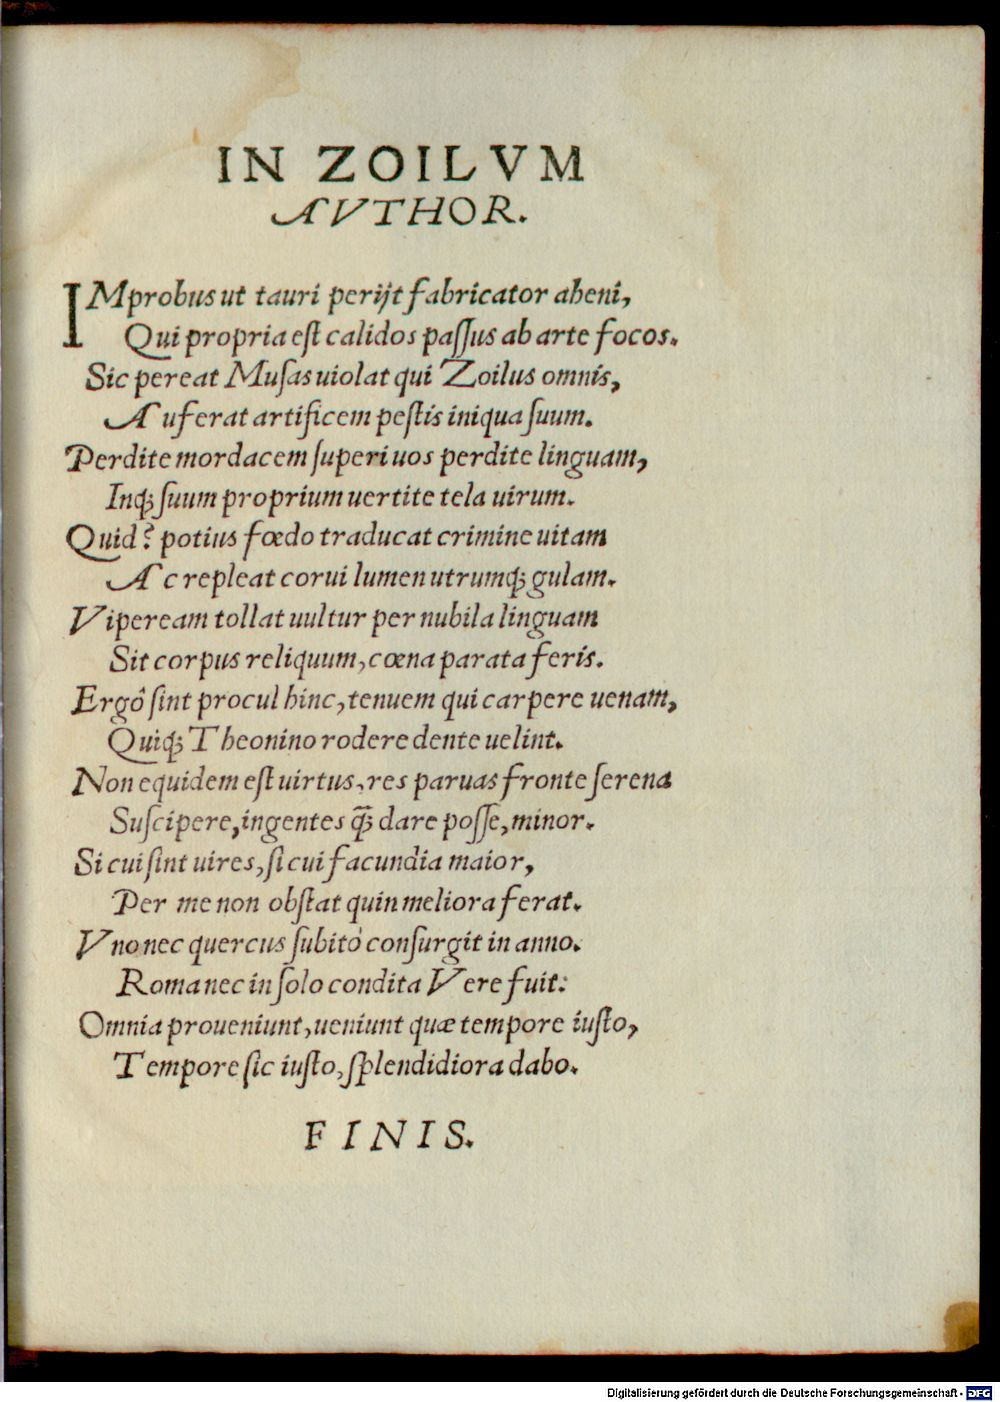 IN ZOILVM
AVTHOR.
IMprobus ut tauri perijt fabricator aheni,
Qui propria est calidos passus ab arte focos.
Sic pereat Musas uiolat qui Zoilus omnis,
Auferat artificem pestis iniqua suum.
Perdite mordacem superi uos perdite linguam,
Inq; suum proprium uertite tela uirum.
Quid? potius fœdo traducat crimine uitam
Ac repleat corui lumen utrumq; gulam.
Vipeream tollat uultur per nubila linguam
Sit corpus reliquum, cœna parata feris.
Ergô sint procul hinc, tenuem qui carpere uenam,
Quiq; Theonino rodere dente uelint.
Non equidem est uirtus, res paruas fronte serena
Suscipere, ingentes q̃; dare posse, minor.
Si cui sint uires, si cui facundia maior,
Per me non obstat quin meliora ferat.
Vno nec quercus subitò consurgit in anno.
Roma nec in solo condita Vere fuit:
Omnia proueniunt, ueniunt quæ tempore iusto,
Tempore sic iusto, splendidiora dabo.
FINIS.
Digitalisierung gefördert durch die Deutsche Forschungsgemeinschaft - DFG